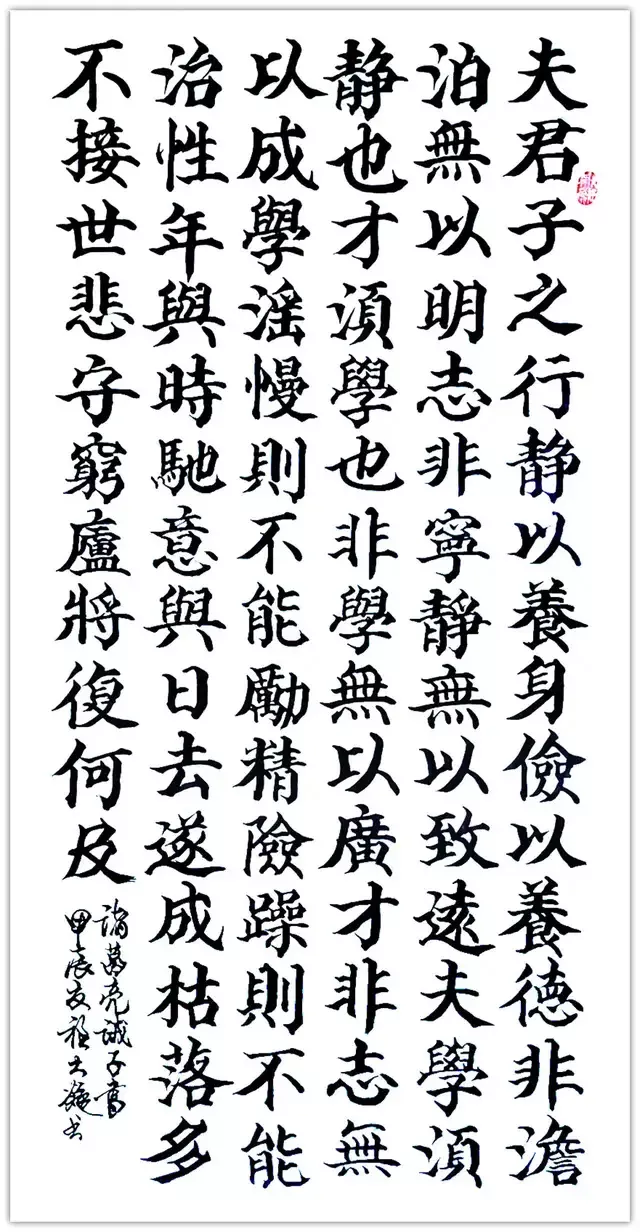 夫君子之行静以養身儉以養德非澹
泊無以明志非寧静無以致遠夫學須
静也才須學也非學無以廣才非志無
以成學滛慢則不能勵精險躁則不能
治性年與時馳意與日去遂成枯落多
不接世悲守窮廬將復何及
諸葛亮誡子書
甲辰友祖大凝书